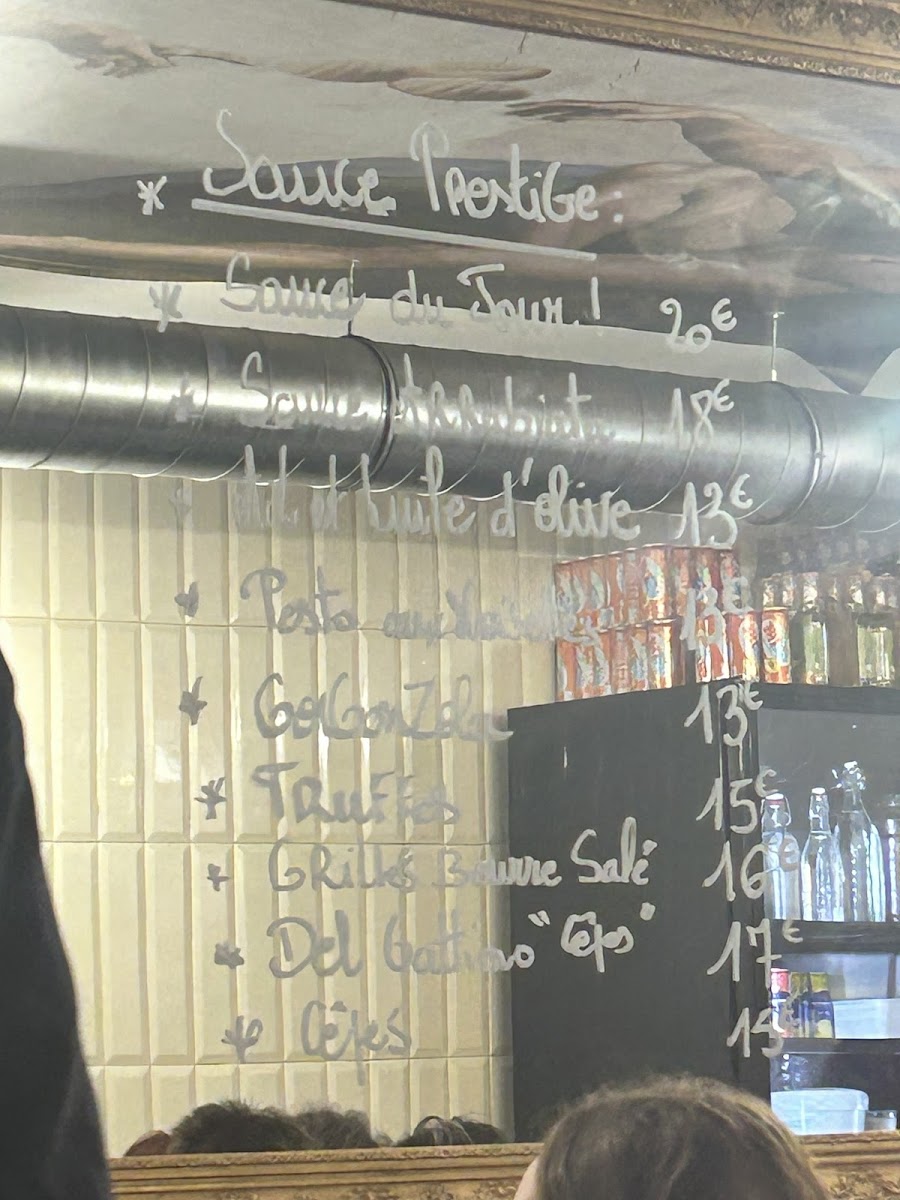 * Sauce Prestige:
* Sauce du Jour! 20€
* Sauce Arrabiata 18€
* Ail et huile d'olive 13€
* Pesto aux 13€
* Gorgonzola 13€
* Truffes 15€
* Grillés Beurre Salé 16€
* Del Gattino "Cêpes" 17€
* Cêpes 15€